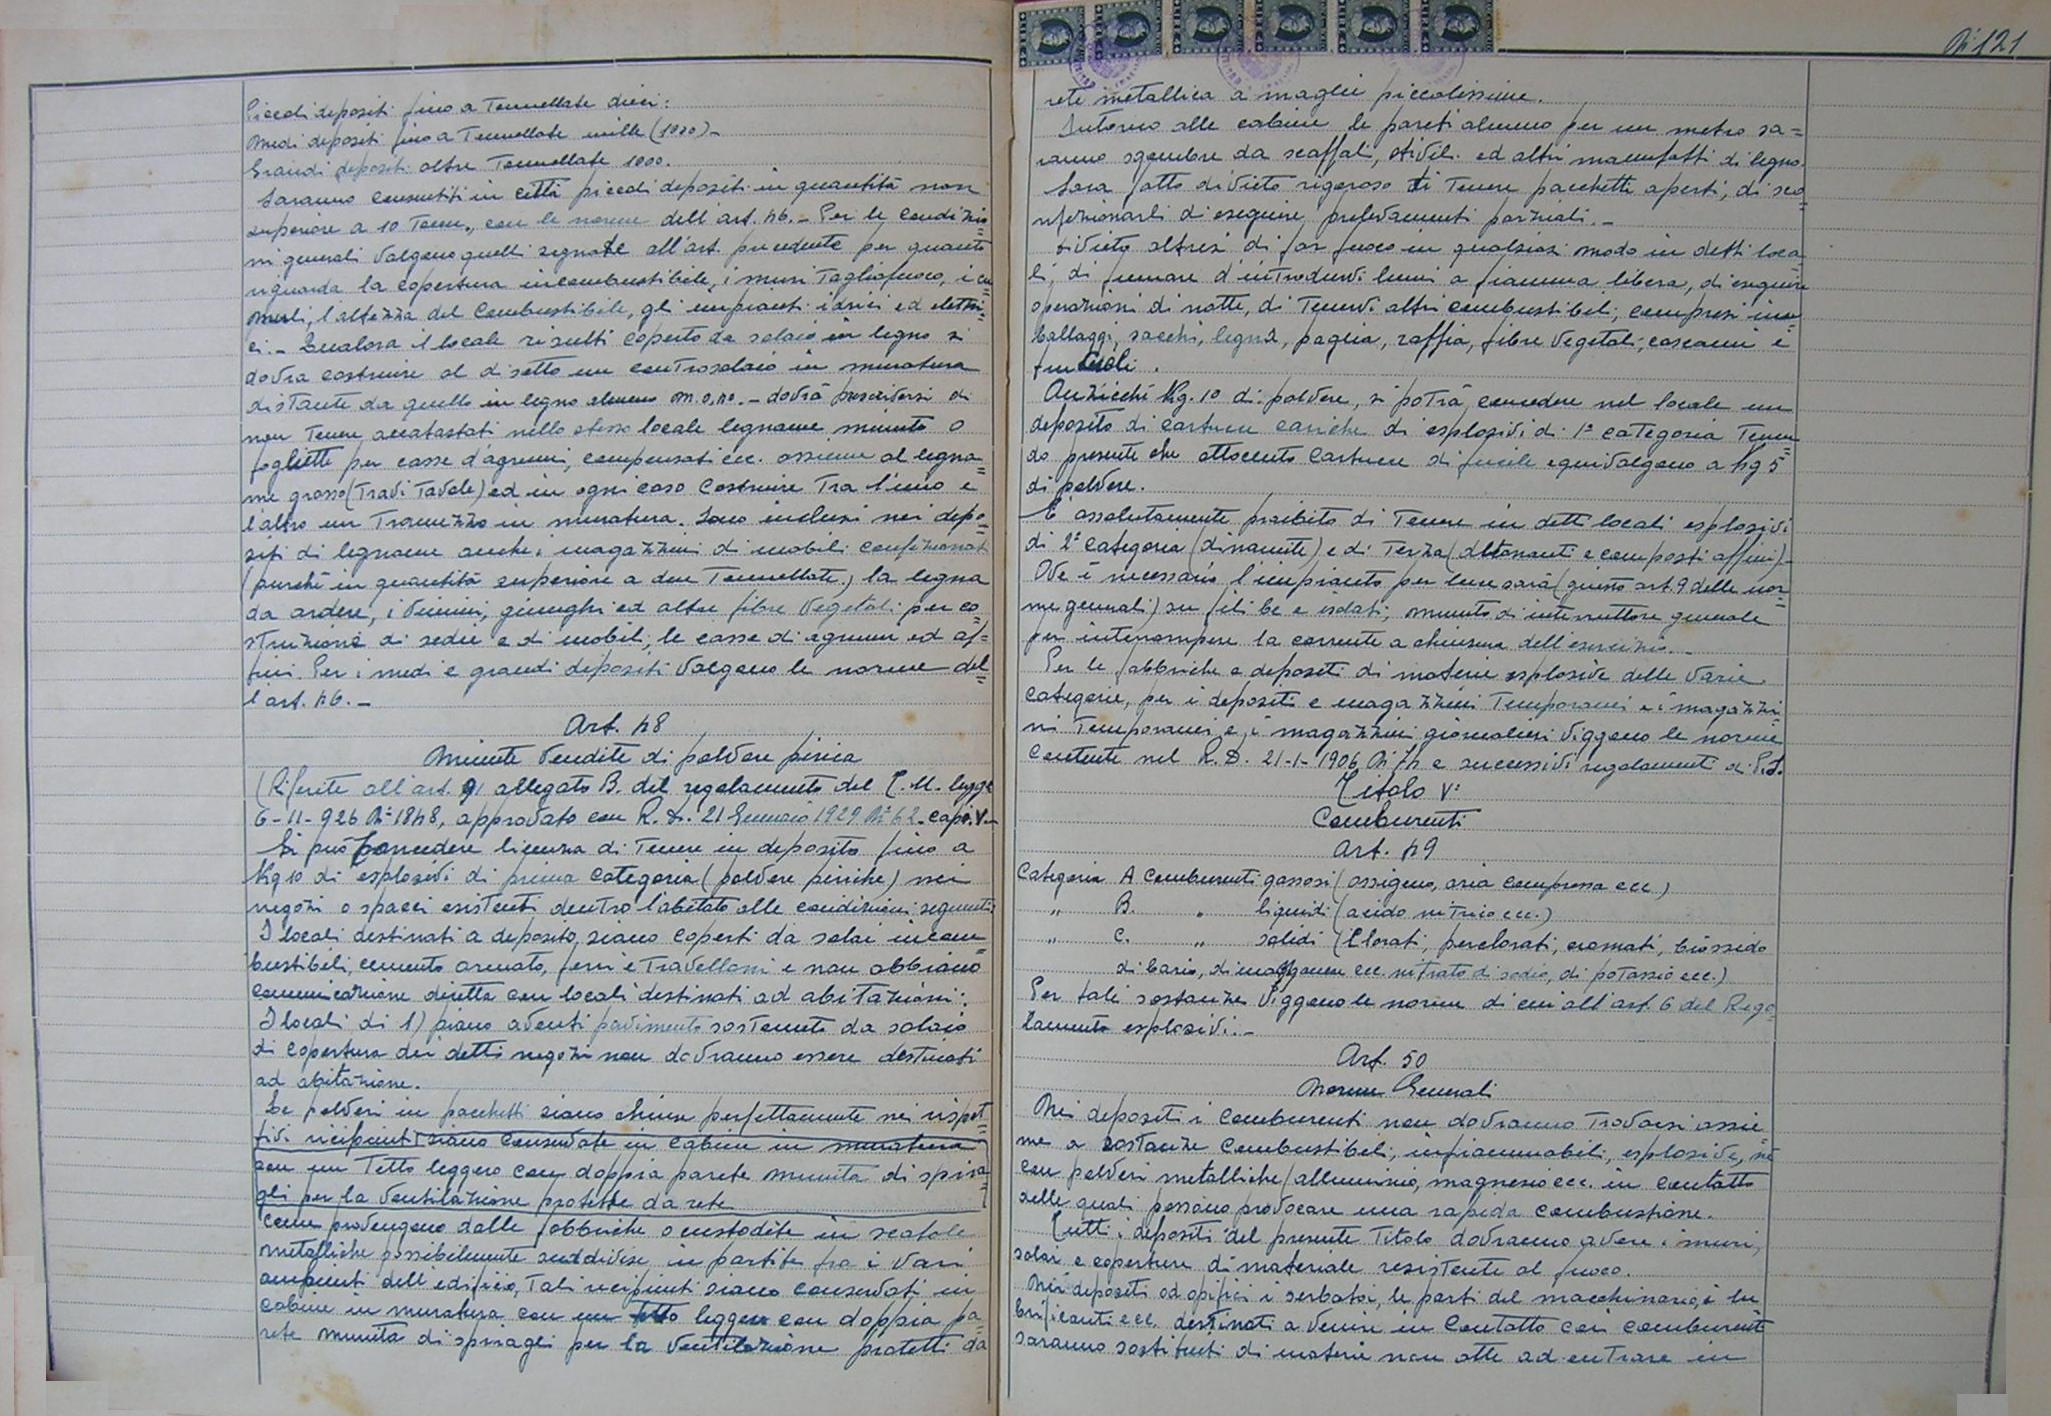 Piccoli depositi fino a Tonnellate dieci:
Medi depositi fino a Tonnellate mille (1000)-
Grandi depositi oltre Tonnellate 1000.
Saranno consentiti in città piccoli depositi in quantità non
superiore a 10 Tonn., con le norme dell'art. 46.- Per le condizio=
ni generali valgono quelli segnate all'art. precedente per quanto
riguarda la copertura incombustibile, i muri Tagliafuoco, i cu=
muli, l'altezza del combustibile, gli impianti idrici ed elettri=
ci.- Qualora il locale risulti coperto da solaio in legno si
dovrà costruire al disotto un controsolaio in muratura
distante da quello in legno almeno m. 0,40.- dovrà prescriversi di
non Tenere accatastati nello stesso locale legname minuto o
fogliette per casse d'agrumi, compensati ecc. assieme al legna=
me grosso (Travi Tavole) ed in ogni caso costruire Tra l'uno e
l'altro un Tramezzo in muratura. Sono inclusi nei depo=
siti di legname anche i magazzini di mobili confezionati
(purchè in quantità superiore a due Tonnellate), la legna
da ardere, i vimini, giunghi ed altre fibre vegetali per co=
struzione di sedie e di mobili, le casse di agrumi ed af=
fini. Per i medi e grandi depositi valgono le norme del=
l'art. 46.-
Art. 48
Minute vendite di polvere pirica
(Riferite all'art. 91 allegato B. del regolamento del T.U. legge
6-11-926 N° 1848, approvato con R.D. 21 Gennaio 1929 N° 62. capo. V-
Si può concedere licenza di Tenere in deposito fino a
Kg 10 di esplosivi di prima categoria (polvere piriche) nei
negozi o spacci esistenti dentro l'abitato alle condizioni seguenti:
I locali destinati a deposito, siano coperti da solai incom=
bustibili, cemento armato, ferri e Travelloni e non abbiano
comunicazione diretta con locali destinati ad abitazioni:
I locali di 1) piano aventi pavimento sostenuto da solaio
di copertura dei detti negozi non dovranno essere destinati
ad abitazione.
Le polveri in pacchetti siano chiuse perfettamente nei rispet=
tivi recipienti siano conservate in cabine in muratura
con un Tetto leggero con doppia parete munita di spira=
gli per la ventilazione protette da rete
come provengono dalle fabbriche o custodite in scatole
metalliche possibilmente suddivise in partite fra i vari
ambienti dell'edificio, Tali recipienti siano conservati in
cabine in muratura con un tetto leggero con doppia pa=
rete munita di spiragli per la ventilazione protetti da
N° 121
rete metallica a maglie piccolissime.
Intorno alle cabine le pareti almeno per un metro sa=
ranno sgombre da scaffali, stivili ed altri manufatti di legno.
Sarà fatto divieto rigoroso di Tenere pacchetti aperti, di sco=
nfezionarli di eseguire prelevamenti parziali.-
Divieto altresì di far fuoco in qualsiasi modo in detti loca=
li, di fumare d'introdurvi lumi a fiamma libera, di eseguire
operazioni di notte, di Tenervi altri combustibili, compresi im=
ballaggi, sacchi, legna, paglia, raffia, fibre vegetali, cascami e
trucioli.
Anzicchè Kg. 10 di polvere, si potrà concedere nel locale un
deposito di cartucce cariche di esplosivi di 1ª categoria Tenen=
do presente che ottocento cartucce di fucile equivalgono a Kg 5
di polvere.
E' assolutamente proibito di Tenere in detti locali esplosivi
di 2ª categoria (dinamite) e di Terza (detonanti e composti affini)-
Ove è necessario l'impianto per luce sarà (giusto art. 9 delle nor=
me generali) su fili be e isolati, munito di interruttore generale
per interrompere la corrente a chiusura dell'esercizio.-
Per le fabbriche e depositi di materie esplosive delle varie
categorie, per i depositi e magazzini Temporanei e i magazzi=
ni Temporanei, e i magazzini giornalieri viggono le norme
contenute nel R.D. 21-1-1906 N° 74 e successivi regolamenti di P.S.
Titolo V°
Comburenti
Art. 49
Categoria A Comburenti gassosi (ossigeno, aria compressa ecc.)
" B. " liquidi (acido nitrico ecc.)
" C. " solidi (Clorati, perclorati, cromati, biossido
di bario, di manganese ecc. nitrato di sodio, di potassio ecc.)
Per tali sostanze viggono le norme di cui all'art. 6 del Rego=
lamento esplosivi.-
Art. 50
Norme Generali
Nei depositi i comburenti non dovranno Trovarsi assie=
me a sostanze combustibili, infiammabili, esplosive, nè
con polveri metalliche (alluminio, magnesio ecc. in contatto
delle quali possono provocare una rapida combustione.
Tutti i depositi del presente Titolo dovranno avere i muri,
solai e coperture di materiale resistente al fuoco.
Nei depositi od opifici i serbatoi, le parti del macchinario, i lu=
brificanti ecc. destinati a venire in contatto coi comburenti
saranno sostituiti di materie non atte ad entrare in